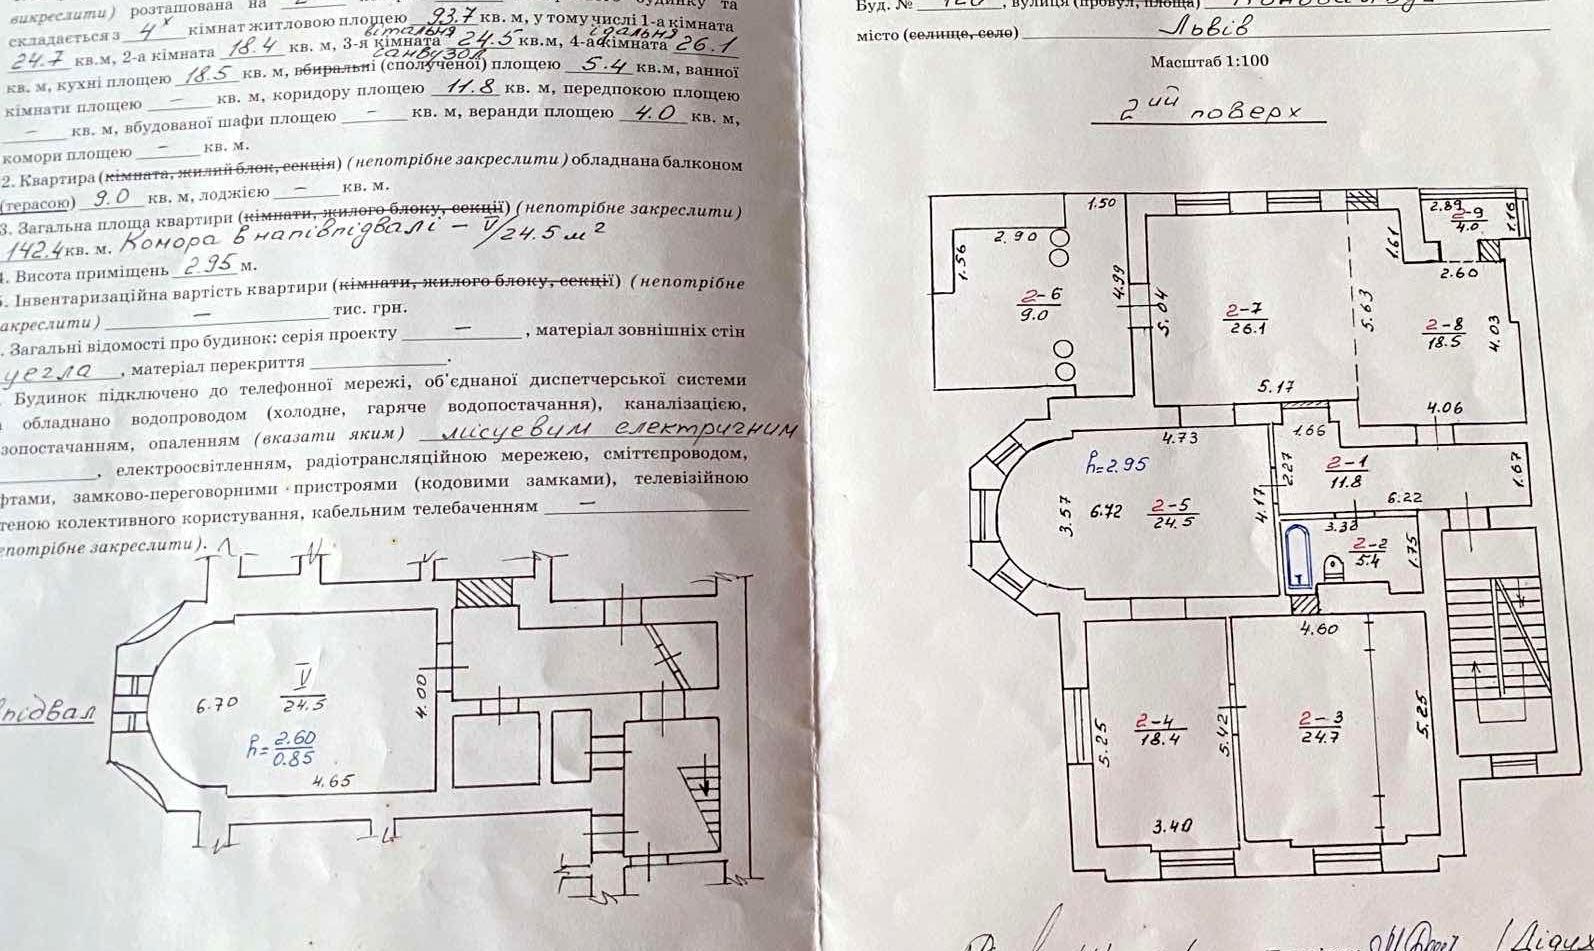 викреслити) розташована на будинку та
складається з 4х кімнат житловою площею 93.7 кв. м, у тому числі 1-а кімната
24.7 кв.м, 2-а кімната 18.4 кв. м, 3-я кімната вітальня 24.5 кв.м, 4-а кімната їдальня 26.1
кв. м, кухні площею 18.5 кв. м, вбиральні (сполученої) санвузол площею 5.4 кв.м, ванної
кімнати площею — кв. м, коридору площею 11.8 кв. м, передпокою площею
— кв. м, вбудованої шафи площею — кв. м, веранди площею 4.0 кв. м,
комори площею — кв. м.
2. Квартира (кімната, жилий блок, секція) (непотрібне закреслити) обладнана балконом
(терасою) 9.0 кв. м, лоджією — кв. м.
3. Загальна площа квартири (кімнати, жилого блоку, секції) (непотрібне закреслити)
142.4 кв. м. Комора в напівпідвалі – V/24.5 м²
4. Висота приміщень 2.95 м.
5. Інвентаризаційна вартість квартири (кімнати, жилого блоку, секції) (непотрібне
акреслити) — тис. грн.
. Загальні відомості про будинок: серія проекту — , матеріал зовнішніх стін
цегла , матеріал перекриття .
Будинок підключено до телефонної мережі, об'єднаної диспетчерської системи
обладнано водопроводом (холодне, гаряче водопостачання), каналізацією,
зопостачанням, опаленням (вказати яким) місцевим електричним
, електроосвітленням, радіотрансляційною мережею, сміттєпроводом,
фтами, замково-переговорними пристроями (кодовими замками), телевізійною
теною колективного користування, кабельним телебаченням —
епотрібне закреслити).
підвал
6.70
V
24.5
h=2.60
0.85
4.00
4.65
Буд. № , вулиця (провул, площа)
місто (селище, село) Львів
Масштаб 1:100
2ий поверх
1.50
2.90
1.56
2-6
9.0
4.99
5.04
2-7
26.1
5.17
5.63
1.61
2.89
2-9
4.0
1.16
2.60
2-8
18.5
4.03
4.06
4.73
h=2.95
3.57
6.72
2-5
24.5
4.17
1.66
2.27
2-1
11.8
6.22
1.67
3.38
2-2
5.4
1.75
4.60
2-4
18.4
5.25
5.42
3.40
2-3
24.7
5.25